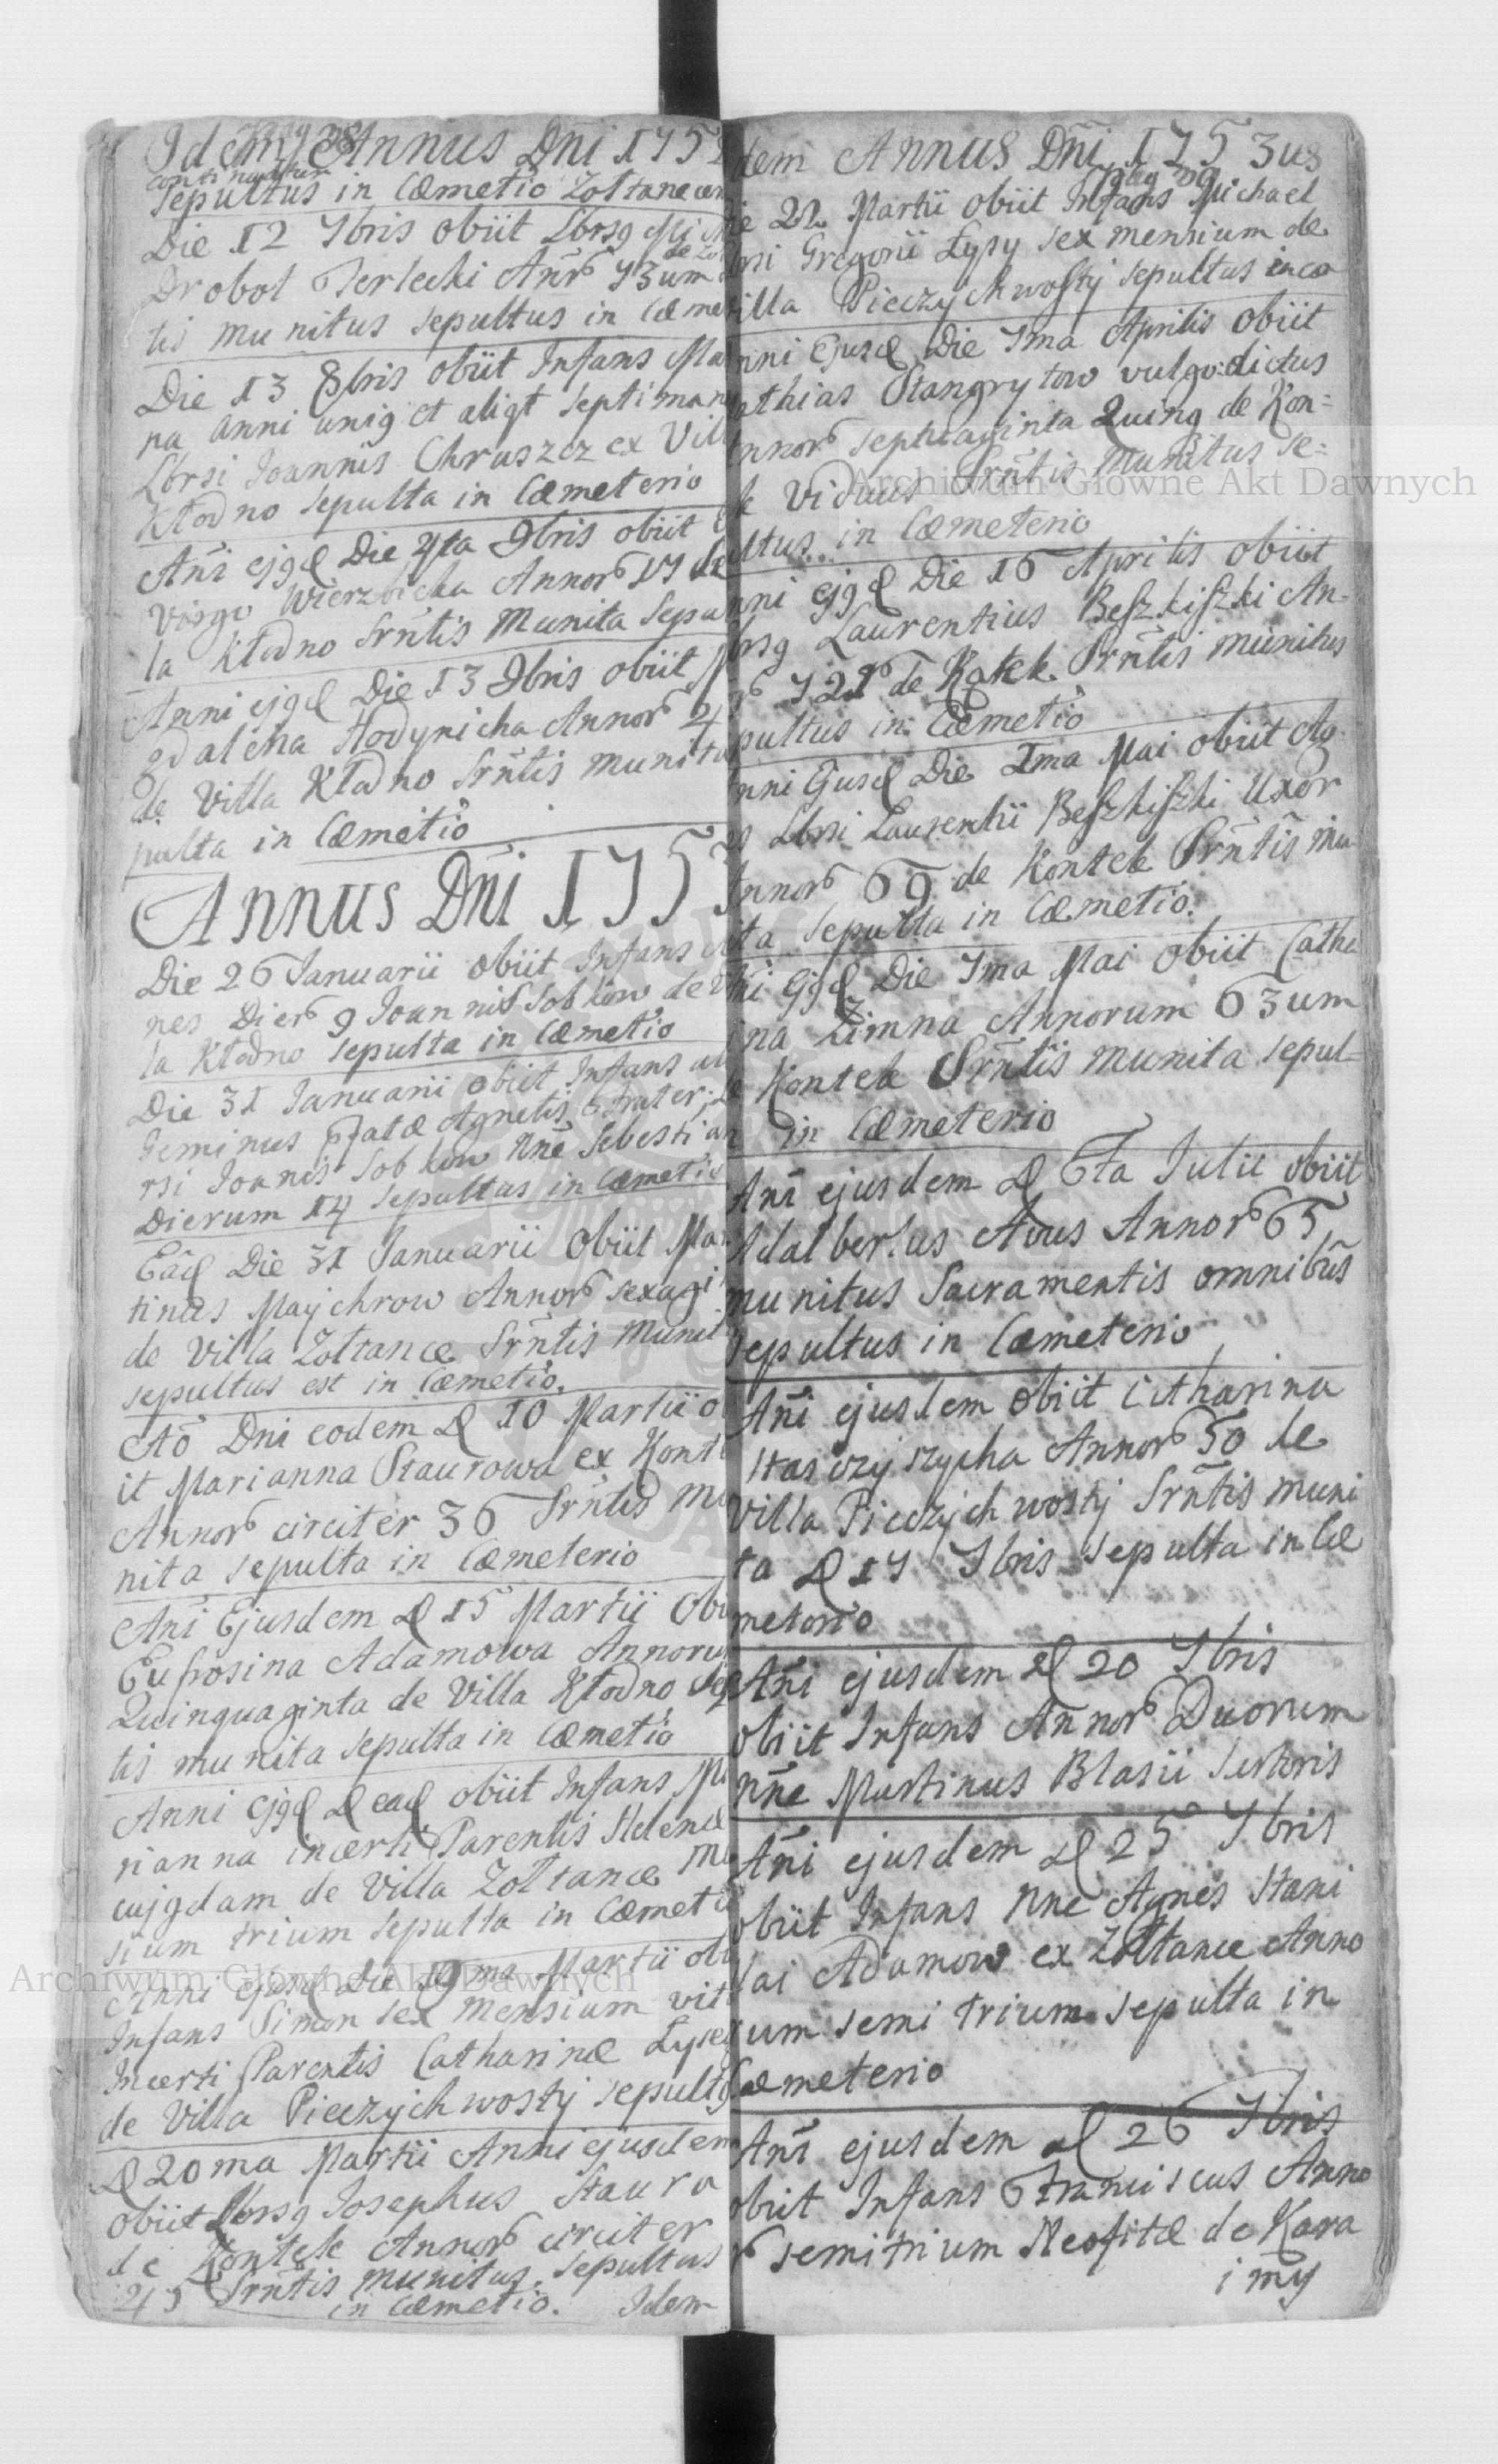 Idem Annus Dni 175
continuatur
Sepultus in Cœmetio Zoltance
Die 12 7bris obiit Lbrsg Mi
Drobot Terlecki Annr 73um
tis munitus sepultus in Cœme
Die 13 8bris obiit Infans Ma
na anni unig et aliqt septiman
Lbrsi Joannis Chruszcz ex Vill
Kłodno sepulta in Cœmeterio
Ani ejgd Die 4ta 9bris obiit
Virgo Wierzbicka Annor 17 de
la Kłodno Srntis Munita Sepu
Anni ejgd Die 13 9bris obiit M
gdalena Hodynicha Annor 4
de Villa Kłodno Srntis munita
pulta in Cœmetio
Annus Dni 175
Die 26 Januarii obiit Infans
nes Dier 9 Joannis Sobkow de
la Kłodno sepulta in Cœmetio
Die 31 Januarii obiit Infans al
Geminus pfatæ Agnetis Frater,
rsi Joanis Sobkow Nne Sebestian
Dierum 14 sepultus in Cœmetio
Ead Die 31 Januarii Obiit Mar
tinus Maychrow Annor sexagi
de Villa Zoltance Srntis Munit
sepultus est in Cœmetio.
Ao Dni eodem D 10 Martii o
it Marianna Staurowa ex Konte
Annor circiter 36 Srntis mu
nita sepulta in Cœmeterio
Ani Ejusdem D 15 Martii Obi
Eufrosina Adamowa Annoru
Quinquaginta de Villa Kłodno
tis munita sepulta in Cœmetio
Anni ejgd D ead obiit Infans Ma
rianna incerti Parentis Helenæ
cujgdam de Villa Zoltance Me
sium trium sepulta in Cœmeti
Anni ejusd Die 19ma Martii obi
Infans Simon sex Mensium vit
Incerti Parentis Catharinæ Lyse
de Villa Pieczychwosty sepultg
D 20ma Martii Anni ejusdem
obiit Lbrsg Josephus Staura
de Kontek Annor circiter
45 Srntis munitus, sepultus
in Cœmetio. Idem
dem Annus Dni 1753us
ie 22 Martii obiit Infans Michael
brsi Gregorii Łysy sex mensium de
illa Pieczychwosty sepultus in cœ
nni Ejusd Die 7ma Aprilis obiit
athias Stangrytow vulgo: dictus
nnor septuaginta Quing de Kon=
k Viduus Srntis munitus se=
ultus in Cœmeterio
nni ejgd Die 16 Aprilis obiit
brsg Laurentius Beszkiszki An-
r 72 de Kontek Srntis munitus
pultus in Cœmetio
nni Ejusd Die Ima Mai obiit Ag
es Lbrsi Laurentii Beszkiszki Uxor
Annor 69 de Kontek Srntis mu
ita sepulta in Cœmetio.
ni Ejgd Die 7ma Mai obiit Catha
ina Zimna Annorum 63um
e Kontek Srntis munita sepul=
in Cœmeterio
Ani ejusdem D 6ta Julii obiit
Adalbertus Avus Annor 65,
munitus Sacramentis omnibus
sepultus in Cœmeterio
Ani ejusdem obiit Catharina
Hasczyszycha Annor 50 de
Villa Pieczychwosty Srntis muni
ta D 17 7bris sepulta in Cœ
meterio
Ani ejusdem D 20 7bris
obiit Infans Annor Duorum
Nne Martinus Blasii Sutoris
Ani ejusdem D 25 7bris
obiit Infans Nne Agnes Stani
lai Adamow ex Zoltance Anno
rum semi trium sepulta in
Cœmeterio
Ani ejusdem D 26 7bris
obiit Infans Franciscus Anno
r semitrium Neofitæ de Kara
imy
Archiwum Główne Akt Dawnych
Archiwum Główne Akt Dawnych